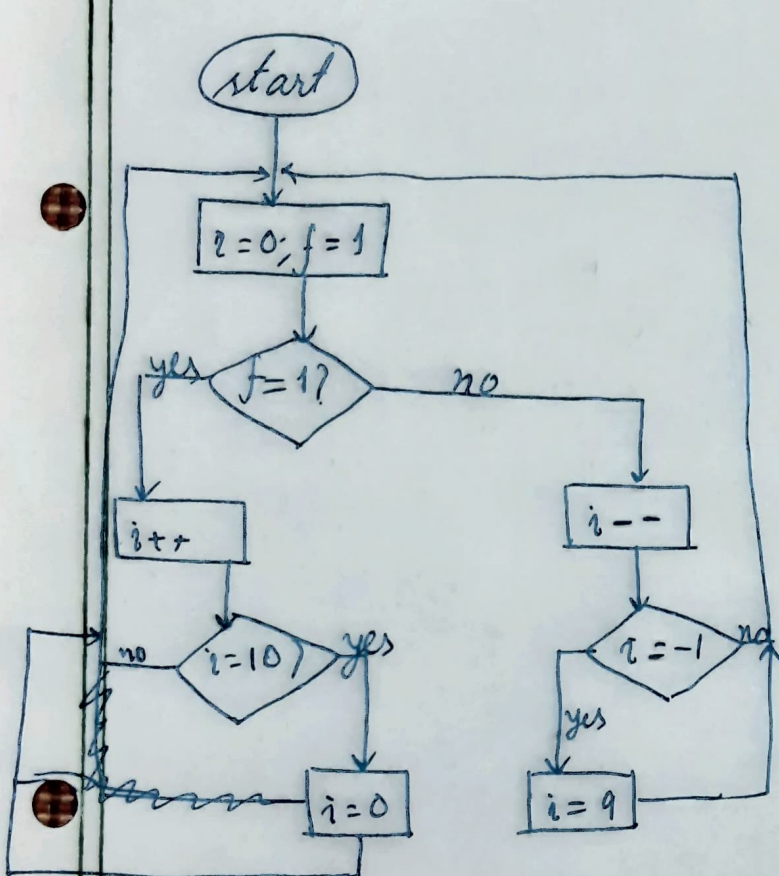 start
i=0; f=1
yes
f=1?
no
i++
i--
no
i=10?
yes
i=-1
no
yes
i=0
i=9